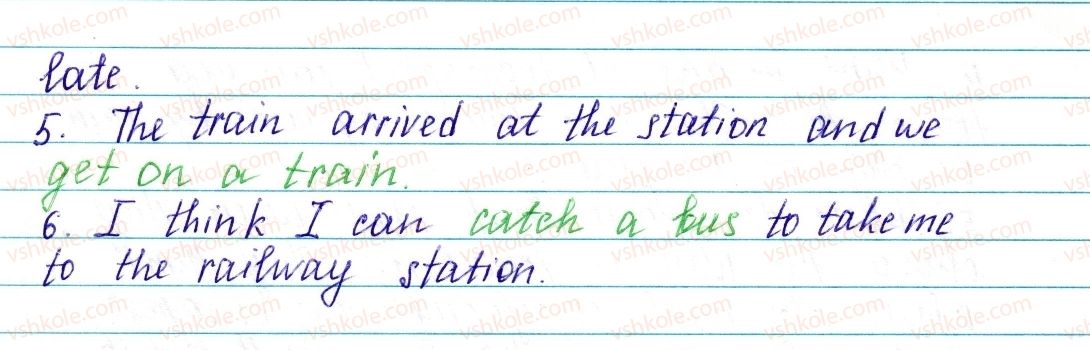 late.
5. The train arrived at the station and we
get on a train.
6. I think I can catch a bus to take me
to the railway station.